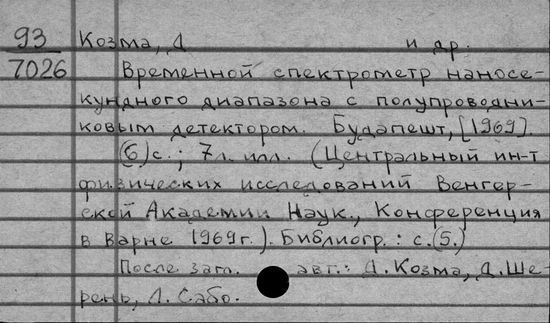 93 Козма, Д и др.
7026 Временной спектрометр наносе-
кундного диапазона с полупроводни-
ковым детектором. Будапешт, [1969].
(6) с.; 7 л. илл. (Центральный ин-т
физических исследований Венгер-
ской Академии Наук., Конференция
в Варне 1969г.). Библиогр.: с. (5.)
После загл. авт.: Д. Козма, Д. Ше-
рень, Л. Сабо.